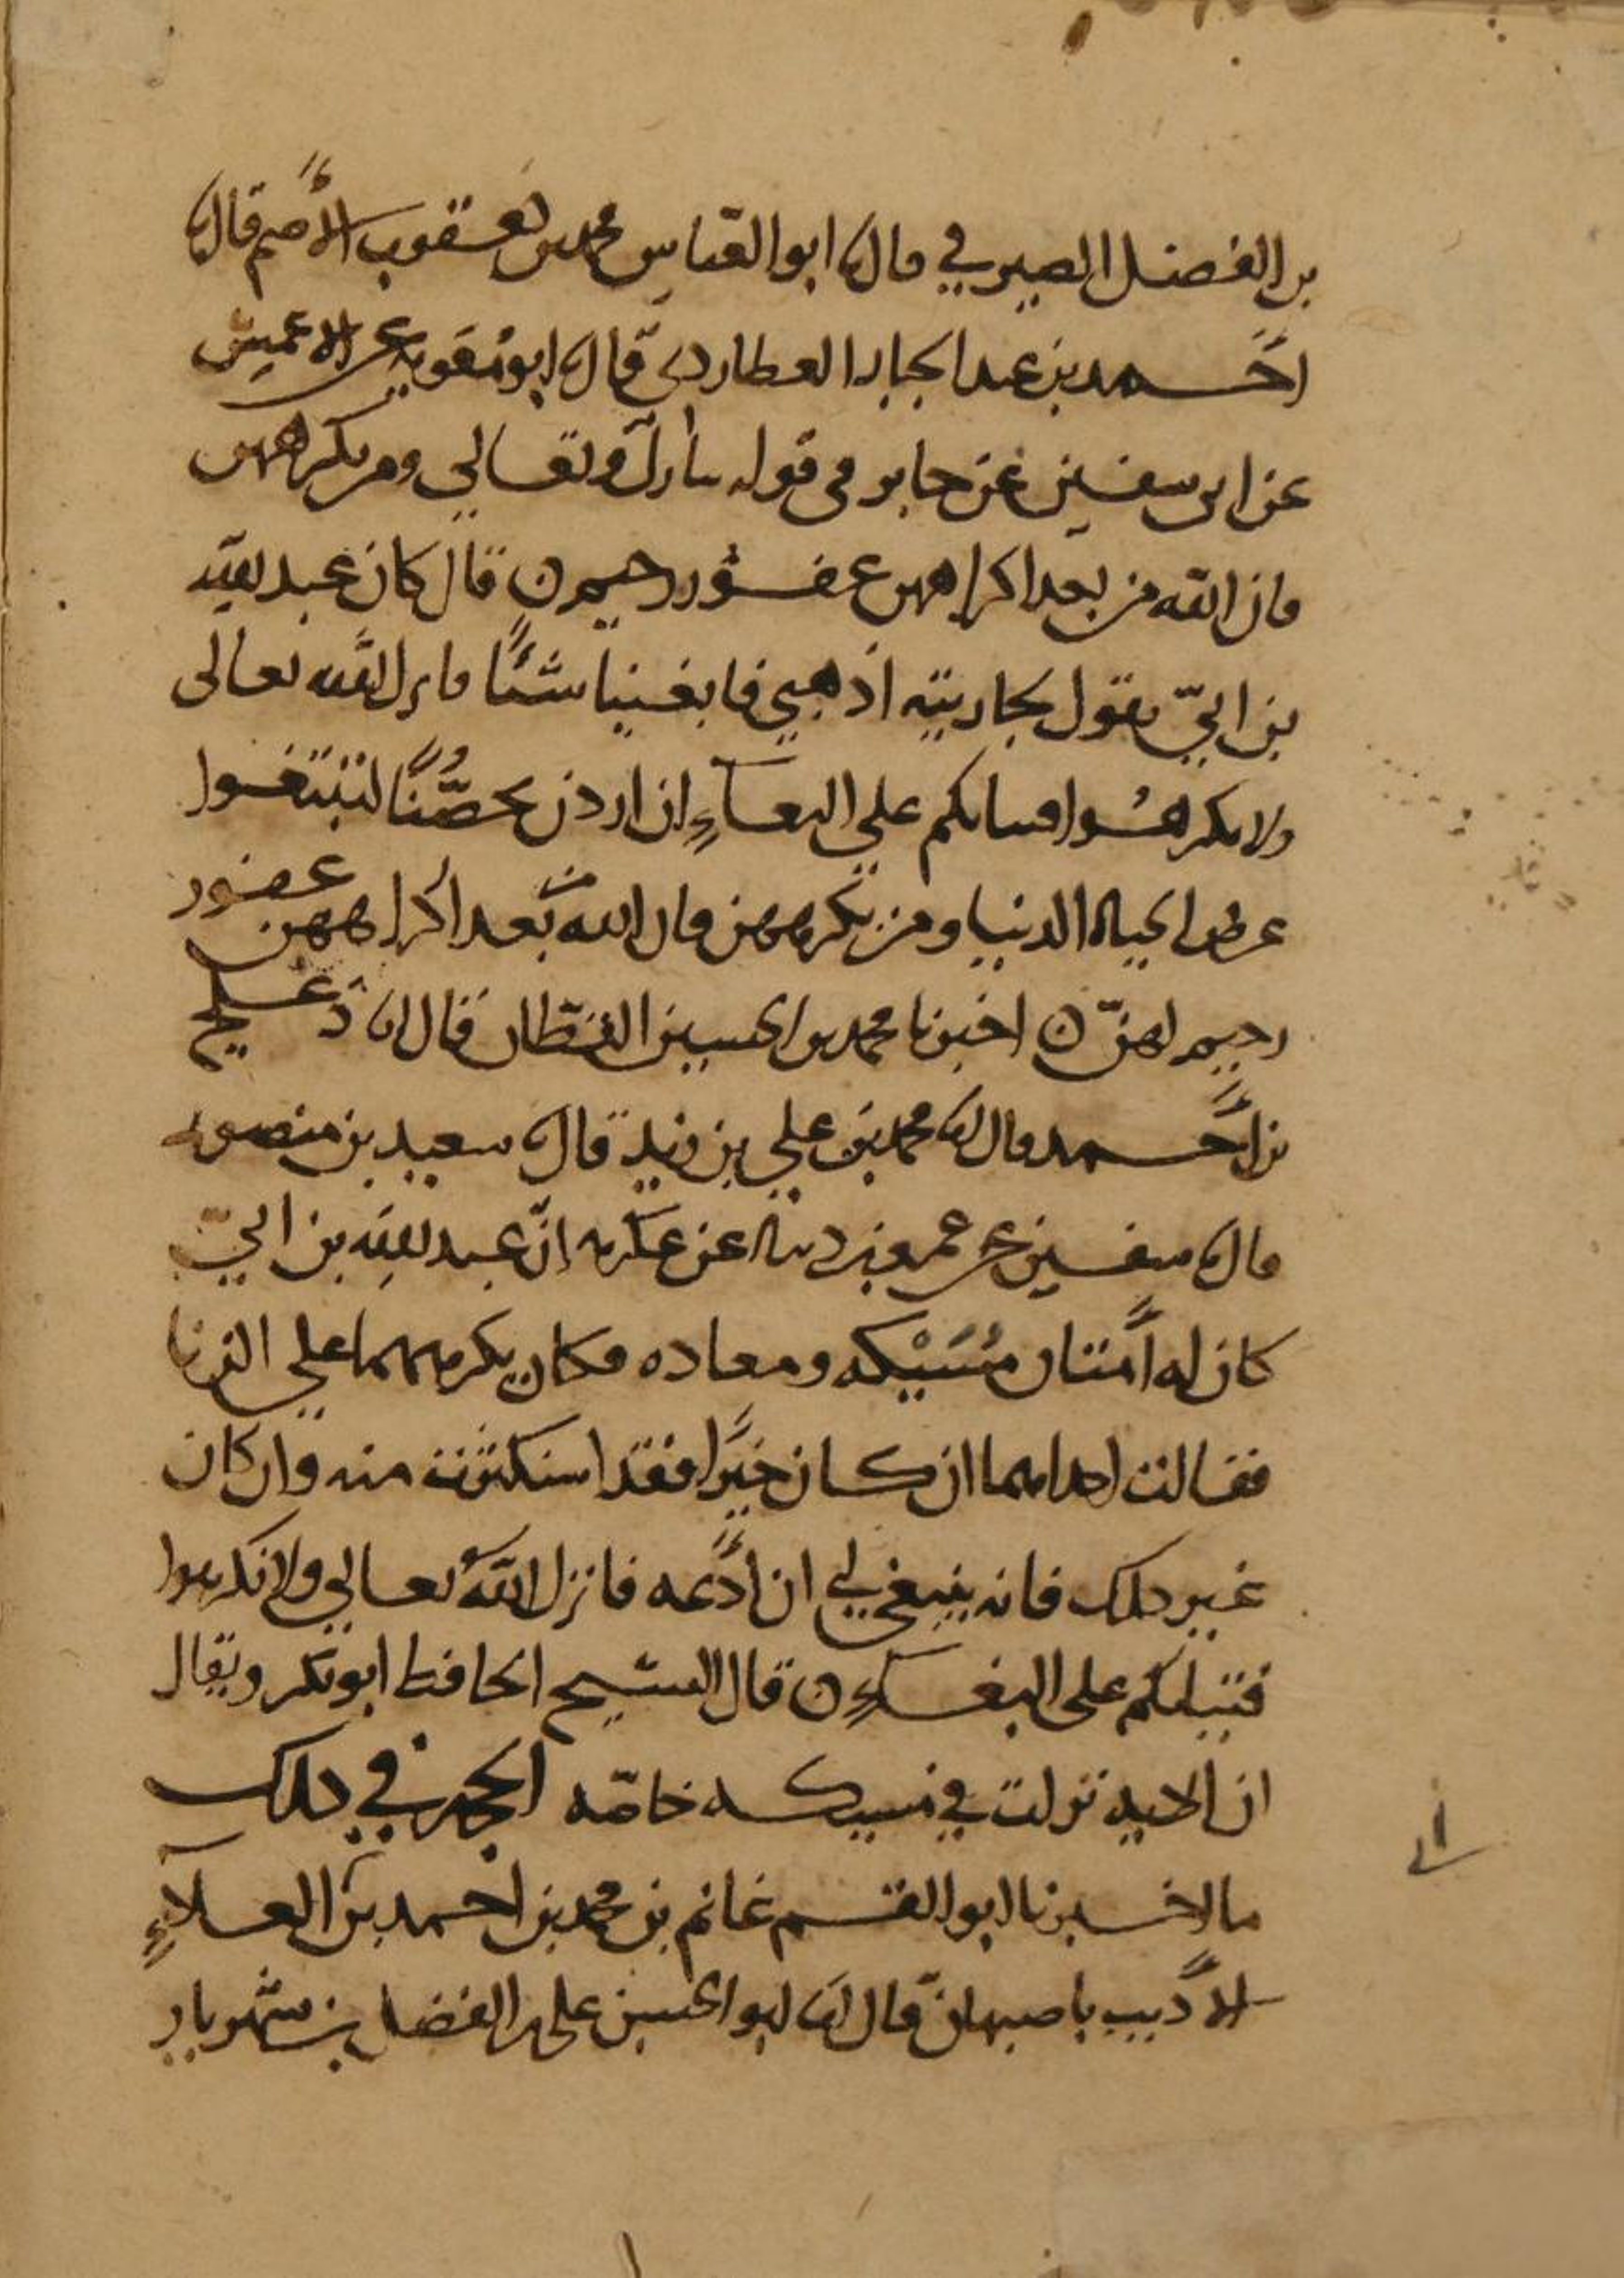 بن الفضل الصيرفي قال ثنا ابو العباس محمد بن يعقوب الأصم قال ثنا
احمد بن عبد الجبار العطاردي قال ثنا ابو معوية عن الاعمش
عن ابي سفين عن جابر في قوله تبارك وتعالى ومن يكرههن
فان الله من بعد اكراههن غفور رحيم ن قال كان عبد الله
بن ابيّ يقول لجاريته اذهبي فابغينا شئًا فانزل الله تعالى
ولا تكرهوا فتياتكم على البغاءِ ان اردن تحصُّنًا لتبتغوا
عرض الحياة الدنيا ومن يكرههن فان الله من بعد اكراههن غفور
رحيم لهنّ ن اخبرنا محمد بن الحسين القطان قال انا دعلج
بن احمد قال ثنا محمد بن علي بن زيد قال ثنا سعيد بن منصور
قال ثنا سفين عن عمرو بن دينار عن عكرمه انّ عبد الله بن ابيّ
كان له أمتان مُسَيْكه ومعاده فكان يكرههما على الزنا
فقالت احداهما ان كان خيرًا فقد استكثرت منه وان كان
غير ذلك فانه ينبغي لي ان أدَعه فانزل اللهُ تعالى ولا تكرهوا
فتياتكم على البغاءِ ن قال الشيخ الحافظ ابو بكر ويقال
ان الايه نزلت في مسيكه خاصّه الحجه في ذلك
ما اخبرنا ابو القسم غانم بن محمد بن احمد بن العلاءِ
الأديب باصبهان قال ثنا ابو الحسين علي بن الفضل بن شهريار